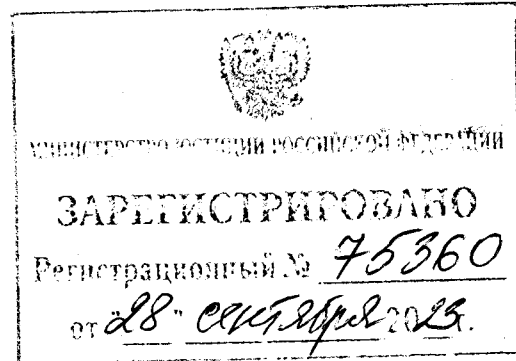 МИНИСТЕРСТВО ЮСТИЦИИ РОССИЙСКОЙ ФЕДЕРАЦИИ
ЗАРЕГИСТРИРОВАНО
Регистрационный № 75360
от "28" сентября 2023г.